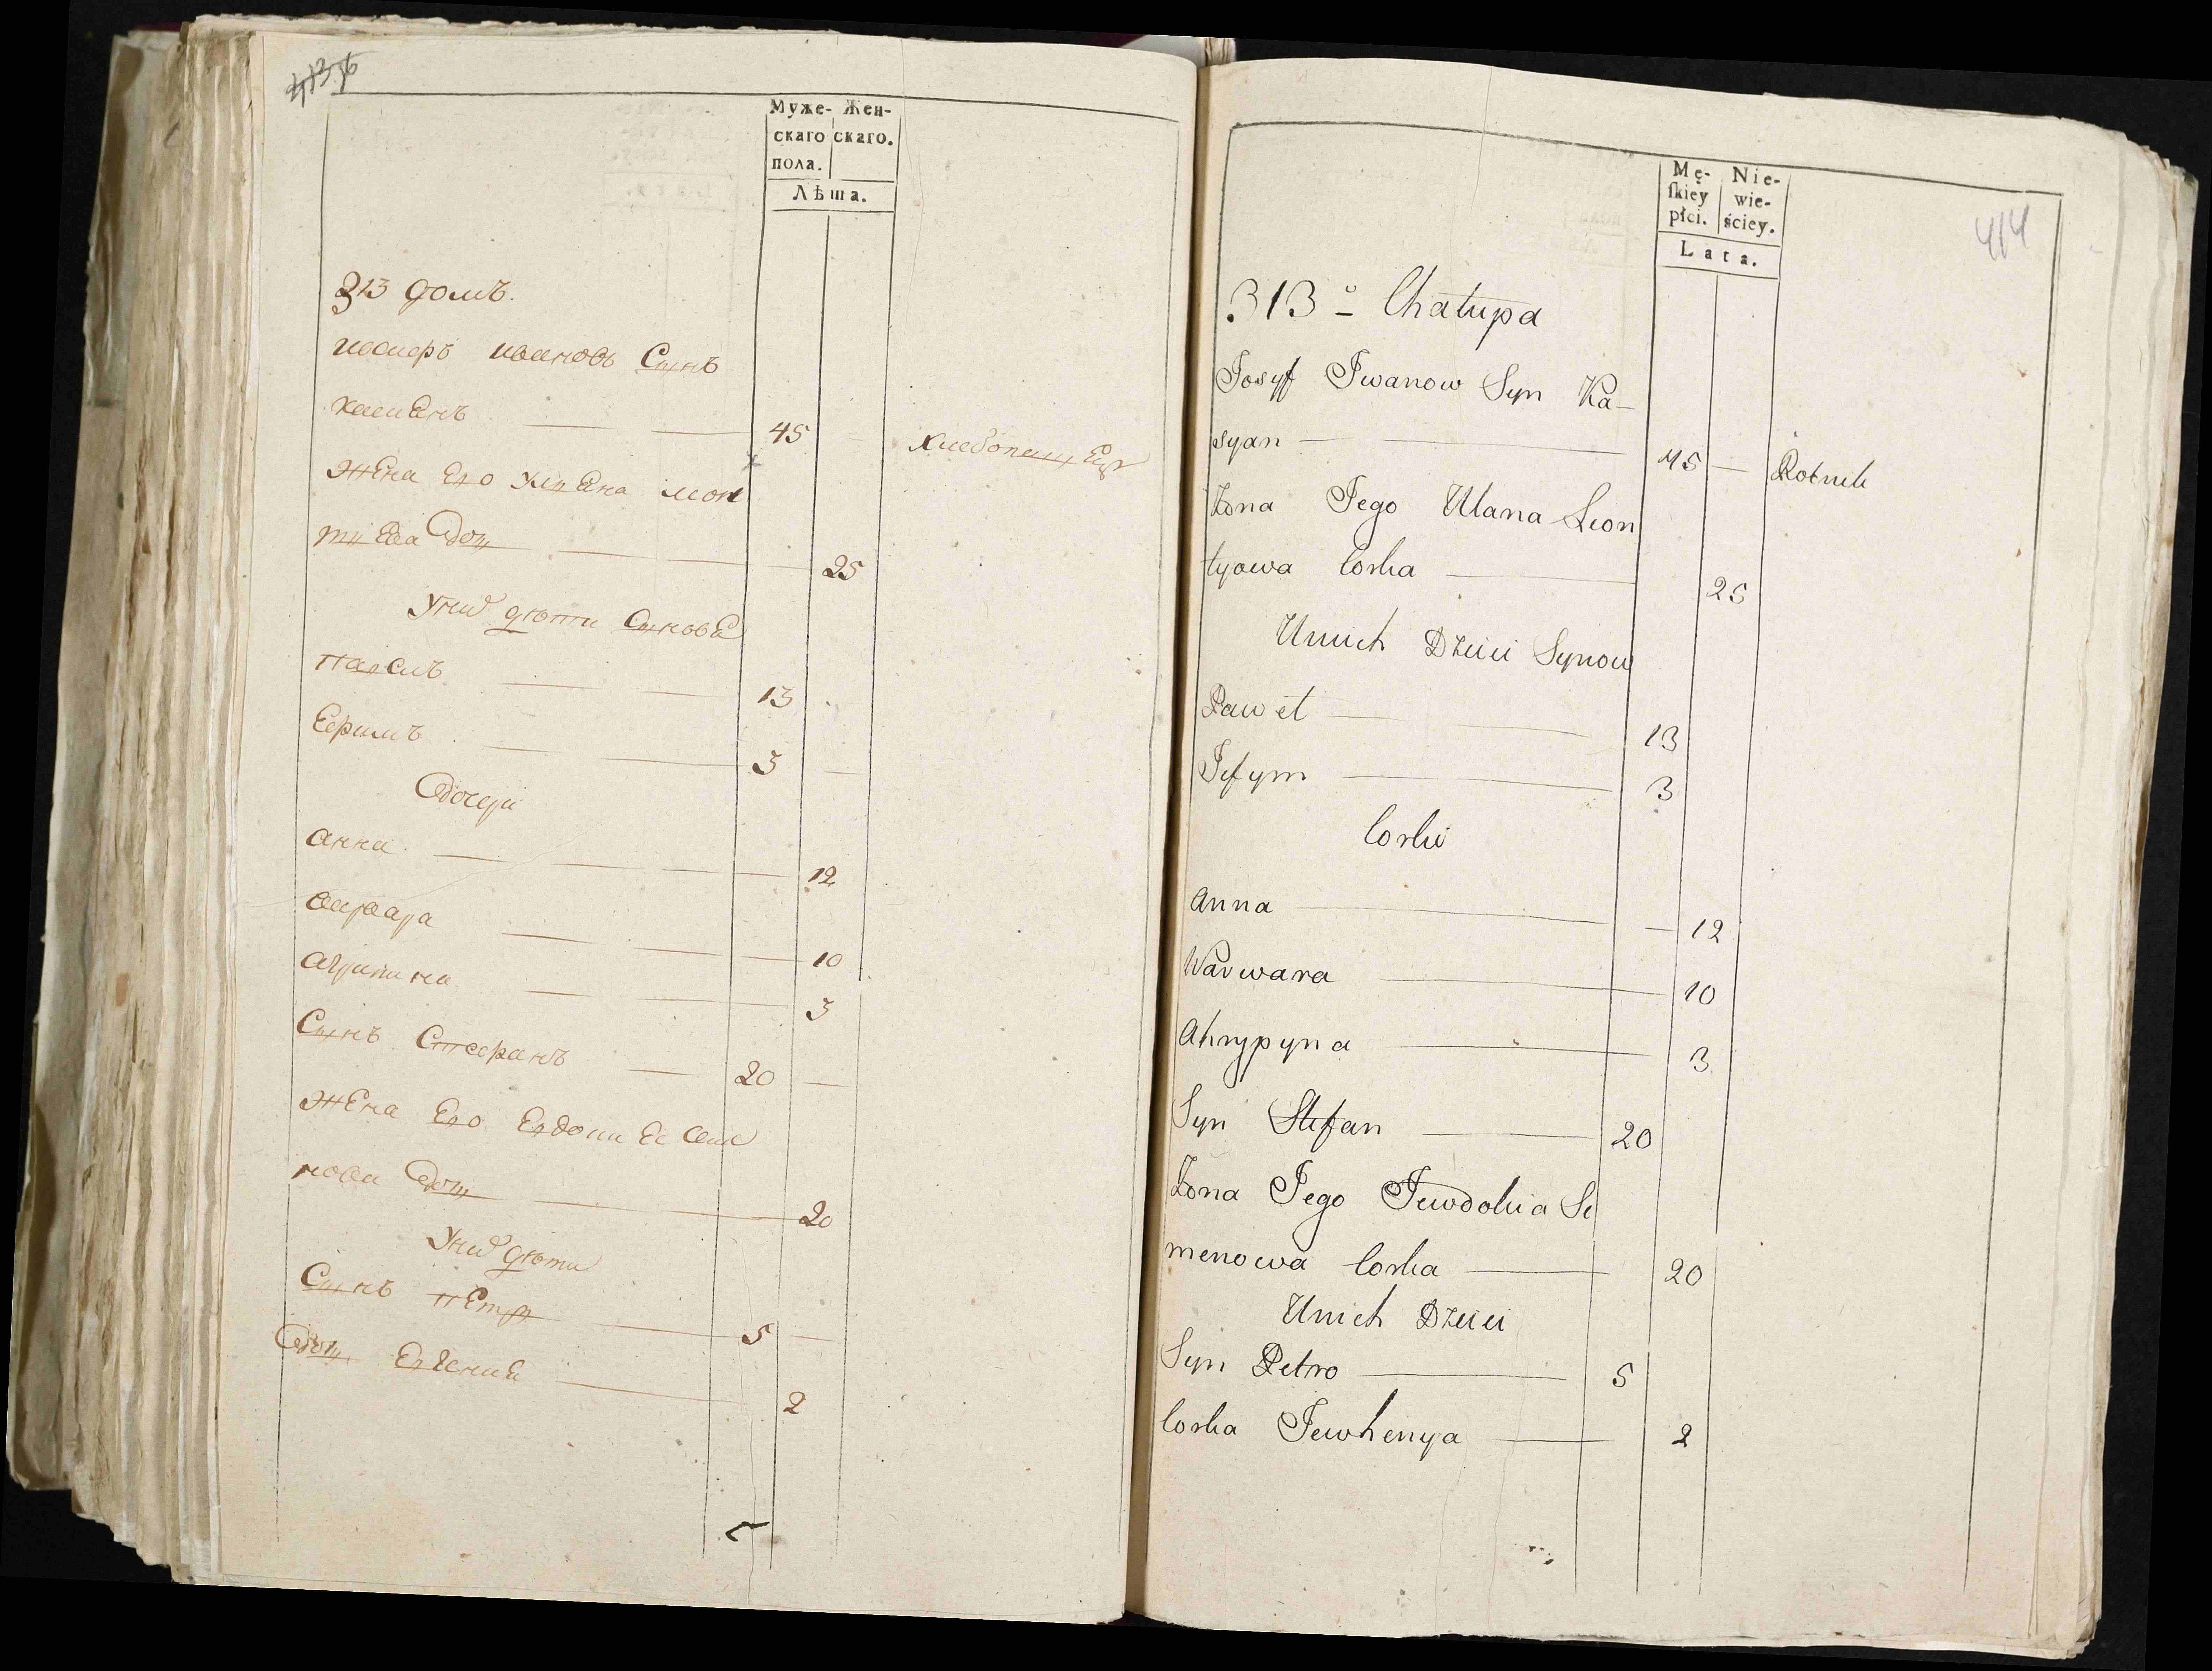 Муже- Жен-
скаго скаго.
пола.
Лѣта.
313 домъ.
иосифъ ивановъ Сынъ
касиянъ 45 хлебопашец
жена Его улияна леон
тиева доч 25
У них дѣти Сынове
Павелъ 13
Ефимъ 3
Дочери
анна 12
варвара 10
агрипина 3
Сынъ Стефанъ 20
жена Его Евдокия Семе
нова доч 20
У них дѣти
Сынъ Петръ 5
Доч Евгения 2
Mę- Nie-
skiey wie-
płci. ściey.
Lata.
414
313º Chałupa
Josyf Iwanow Syn Ka-
syan 45 Rolnik
Żona Jego Ulana Leon
tyowa Corka 25
Unich Dzieci Synow
Paweł 13
Jefym 3
Corki
Anna 12
Warwara 10
Ahrypyna 3
Syn Stefan 20
Żona Jego Jewdokia Se
menowa Corka 20
Unich Dzieci
Syn Petro 5
Corka Jewhenya 2